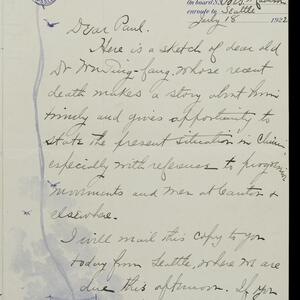 On board S.S.
enroute to Seattle
July 18 1922
Dear Paul.
Here is a sketch of dear old
Dr. Wu Ting-fang, whose recent
death makes a story about him
timely and gives opportunity to
state the present situation in China,
especially with reference to progressive
movements and men at Canton &
elsewhere.
I will mail this copy to you
today from Seattle, where we are
due this afternoon. If you